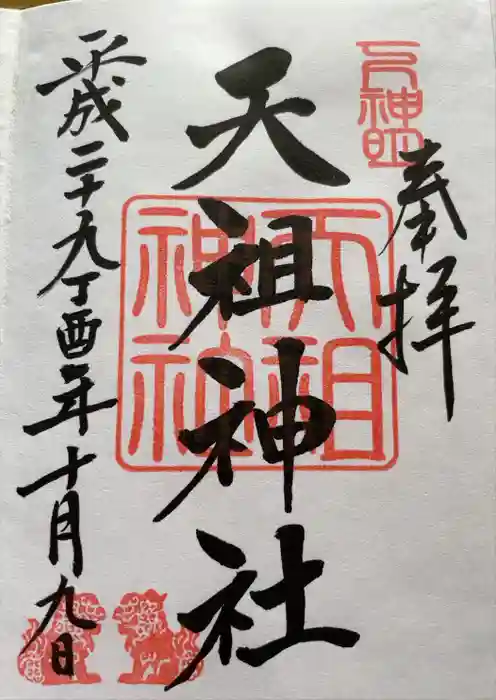 奉拝
天祖神社
天祖神社
平成二十九丁酉年十月九日